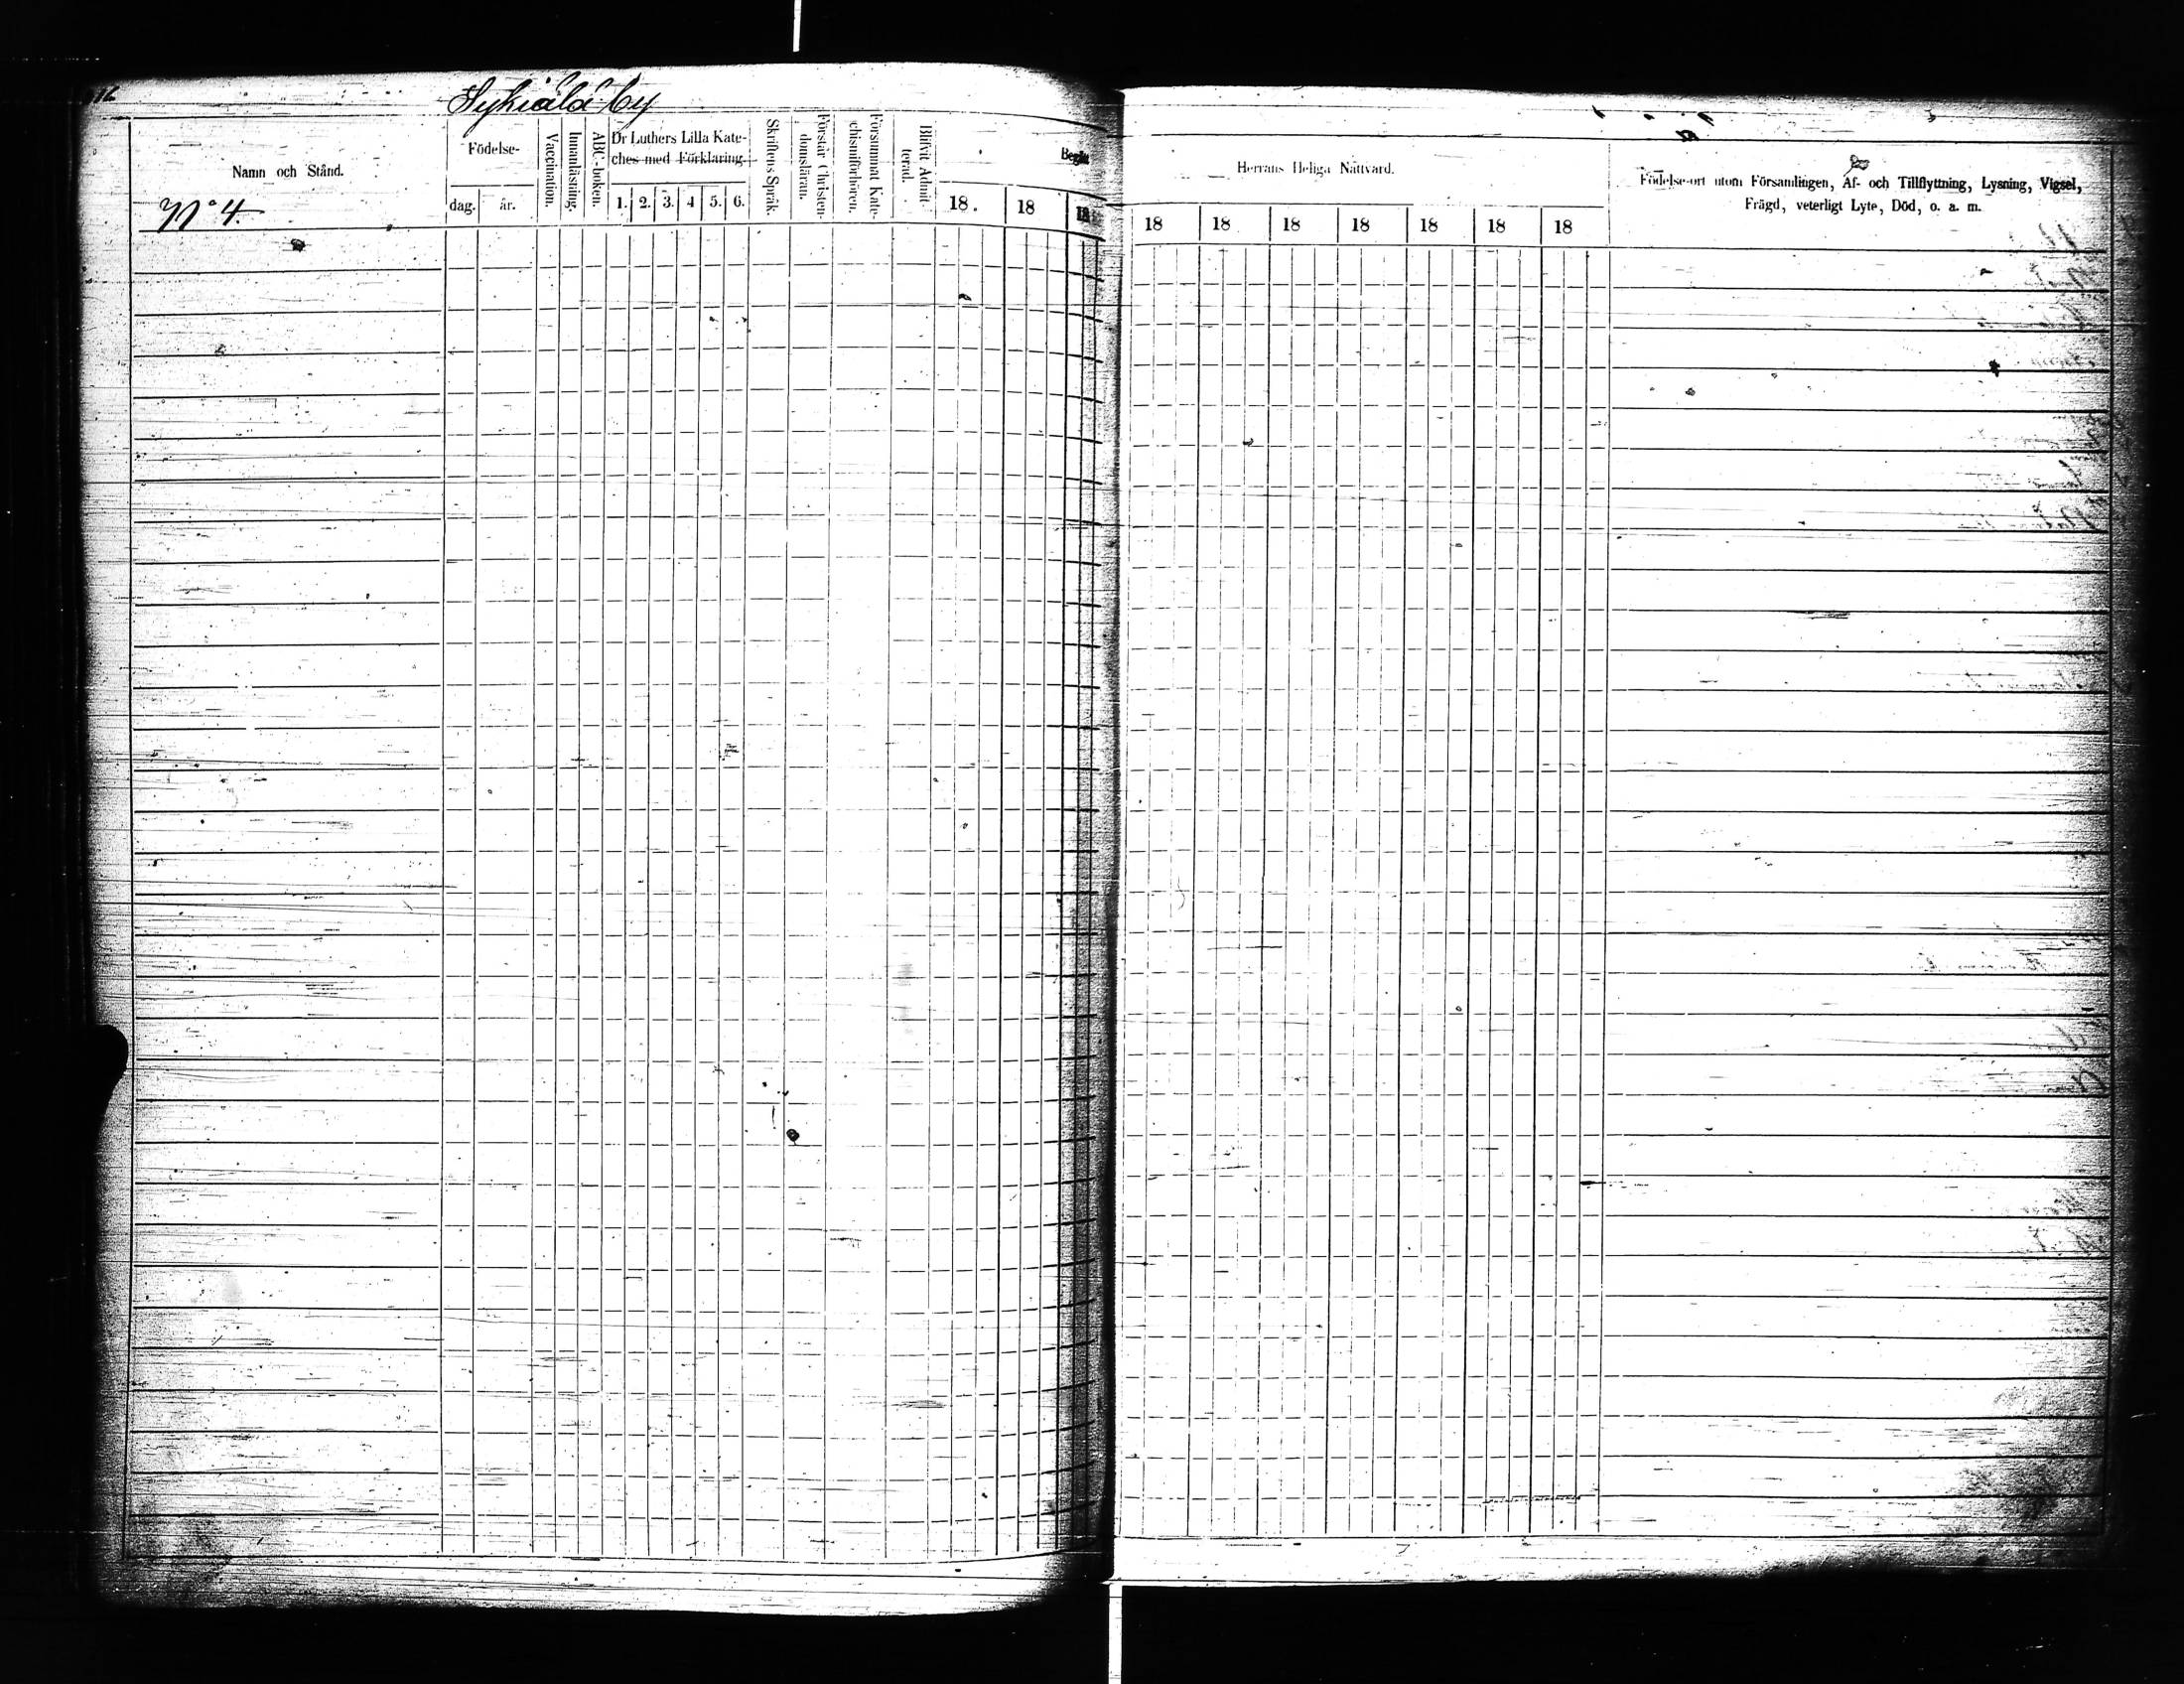 Sykiälä by
Namn och Stånd.
N:o 4
Födelse-
dag. år.
Vaccination.
Innanläsning.
ABC-boken.
Dr Luthers Lilla Kate-
ches med Förklaring.
1. 2. 3. 4 5. 6.
Skriftens Språk.
Förstår Christen-
domsläran.
Försummat Kate-
chismiförhören.
Blifvit Admit-
terad.
Begått
18. 18 18
Herrans Heliga Nattvard.
18 18 18 18 18 18 18
Födelse-ort utom Församlingen, Af- och Tillflyttning, Lysning, Vigsel,
Frägd, veterligt Lyte, Död, o. a. m.